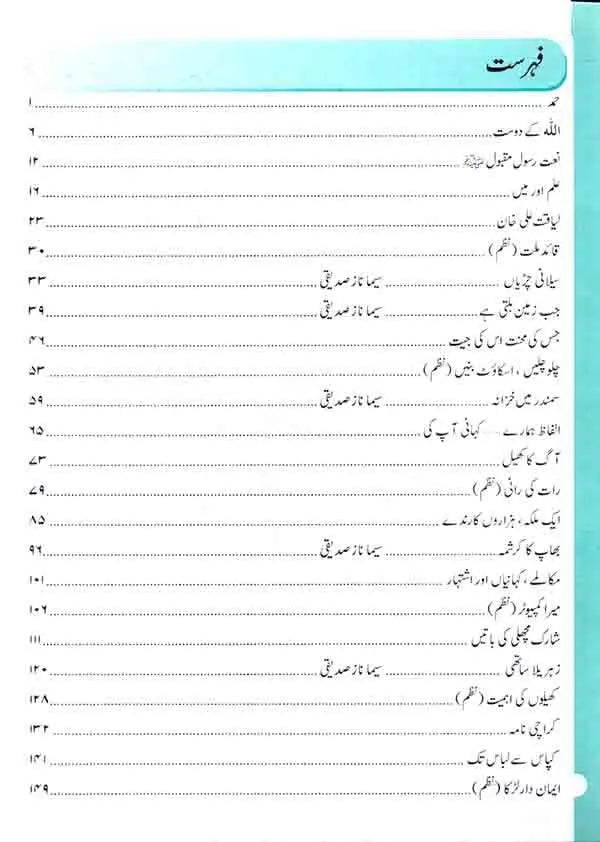 فہرست
حمد ........ ۱
اللہ کے دوست ........ ۶
نعت رسول مقبول ﷺ ........ ۱۲
علم اور میں ........ ۱۶
لیاقت علی خان ........ ۲۳
قائد ملت (نظم) ........ ۳۰
سیلانی چڑیاں ........ سیما ناز صدیقی ........ ۳۳
جب زمین ہلتی ہے ........ سیما ناز صدیقی ........ ۳۹
جس کی محنت اس کی جیت ........ ۴۶
چلو چلیں ، اسکاؤٹ بنیں (نظم) ........ ۵۳
سمندر میں خزانہ ........ سیما ناز صدیقی ........ ۵۹
الفاظ ہمارے ---- کہانی آپ کی ........ ۶۵
آگ کا کھیل ........ ۷۳
رات کی رانی (نظم) ........ ۷۹
ایک ملکہ ، ہزاروں کارندے ........ ۸۵
بھاپ کا کرشمہ ........ سیما ناز صدیقی ........ ۹۶
مکالمے ، کہانیاں اور اشتہار ........ ۱۰۱
میرا کمپیوٹر (نظم) ........ ۱۰۶
شارک مچھلی کی باتیں ........ ۱۱۱
زہریلا ساتھی ........ سیما ناز صدیقی ........ ۱۲۰
کھیلوں کی اہمیت (نظم) ........ ۱۲۸
کراچی نامہ ........ ۱۳۲
کپاس سے لباس تک ........ ۱۴۱
ایمان دار لڑکا (نظم) ........ ۱۴۹